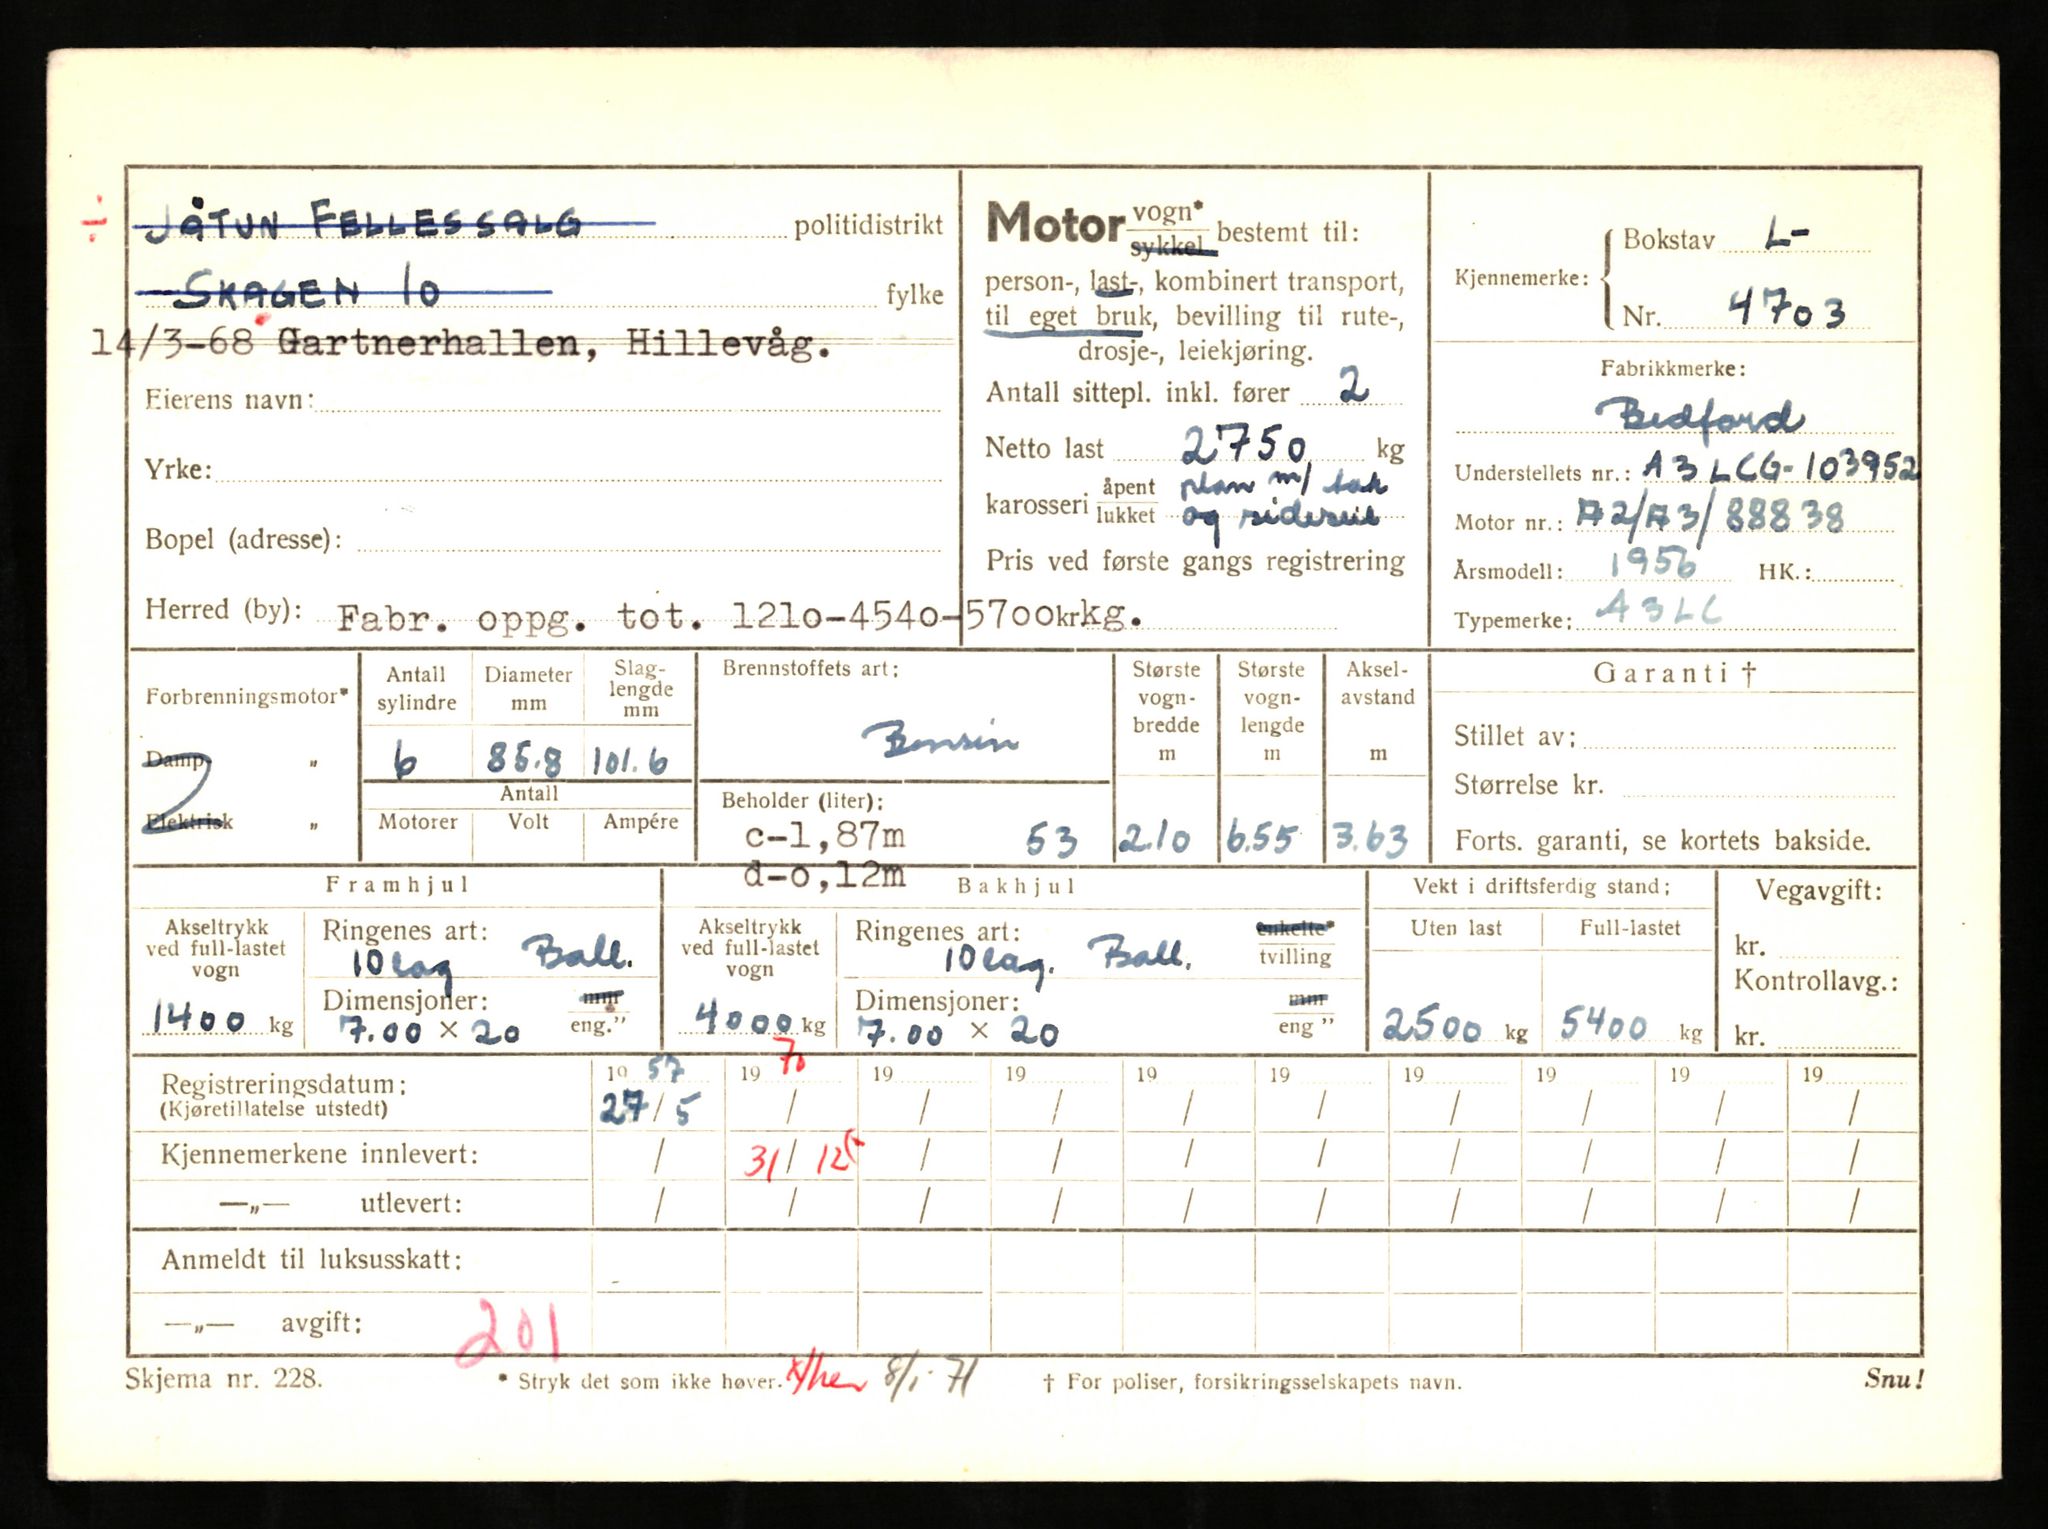 ÷ JÅTUN FELLESSALG politidistrikt
SKAGEN 10 fylke
14/3-68 Gartnerhallen, Hillevåg.
Eierens navn:
Yrke:
Bopel (adresse):
Herred (by): Fabr. oppg. tot. 1210-4540-5700 kr kg.
Motor vogn* sykkel bestemt til:
person-, last-, kombinert transport,
til eget bruk, bevilling til rute-,
drosje-, leiekjøring.
Antall sittepl. inkl. fører 2
Netto last 2750 kg
karosseri åpent lukket plan m/ tak
og sideseil
Pris ved første gangs registrering
Kjennemerke: Bokstav L-
Nr. 4703
Fabrikkmerke:
Bedford
Understellets nr.: A3LCG-103952
Motor nr.: A2/A3/88838
Årsmodell: 1956 HK.:
Typemerke: A3LC
Forbrenningsmotor*
Damp „
Elektrisk „
Antall sylindre
Diameter mm
Slag-
lengde
mm
6 85.8 101.6
Antall
Motorer Volt Ampére
Brennstoffets art:
Bensin
Beholder (liter):
c-1,87m 53
d-0,12m
Største
vogn-
bredde
m
2.10
Største
vogn-
lengde
m
6.55
Aksel-
avstand
m
3.63
Garanti †
Stillet av:
Størrelse kr.
Forts. garanti, se kortets bakside.
Framhjul
Akseltrykk
ved full-lastet
vogn
1400 kg
Ringenes art:
10 lag Ball.
Dimensjoner: mm
7.00 × 20 eng."
Bakhjul
Akseltrykk
ved full-lastet
vogn
4000 kg
Ringenes art: enkelte*
10 lag. Ball. tvilling
Dimensjoner: mm
7.00 × 20 eng "
Vekt i driftsferdig stand:
Uten last Full-lastet
2500 kg 5400 kg
Vegavgift:
kr.
Kontrollavg.:
kr.
Registreringsdatum: 19 57 19 70 19 19 19 19 19 19 19 19
(Kjøretillatelse utstedt) 27/5 / / / / / / / / /
Kjennemerkene innlevert: / 31/12 / / / / / / / /
—„— utlevert: / / / / / / / / / /
Anmeldt til luksusskatt:
—„— avgift: 201
Skjema nr. 228. * Stryk det som ikke høver. 8/1-71 † For poliser, forsikringsselskapets navn. Snu!